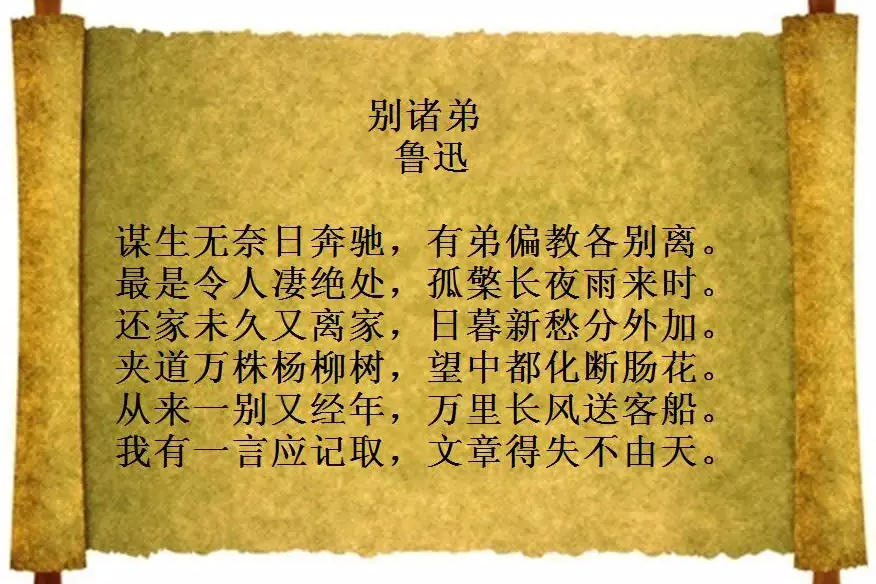 别诸弟
鲁迅
谋生无奈日奔驰，有弟偏教各别离。
最是令人凄绝处，孤檠长夜雨来时。
还家未久又离家，日暮新愁分外加。
夹道万株杨柳树，望中都化断肠花。
从来一别又经年，万里长风送客船。
我有一言应记取，文章得失不由天。